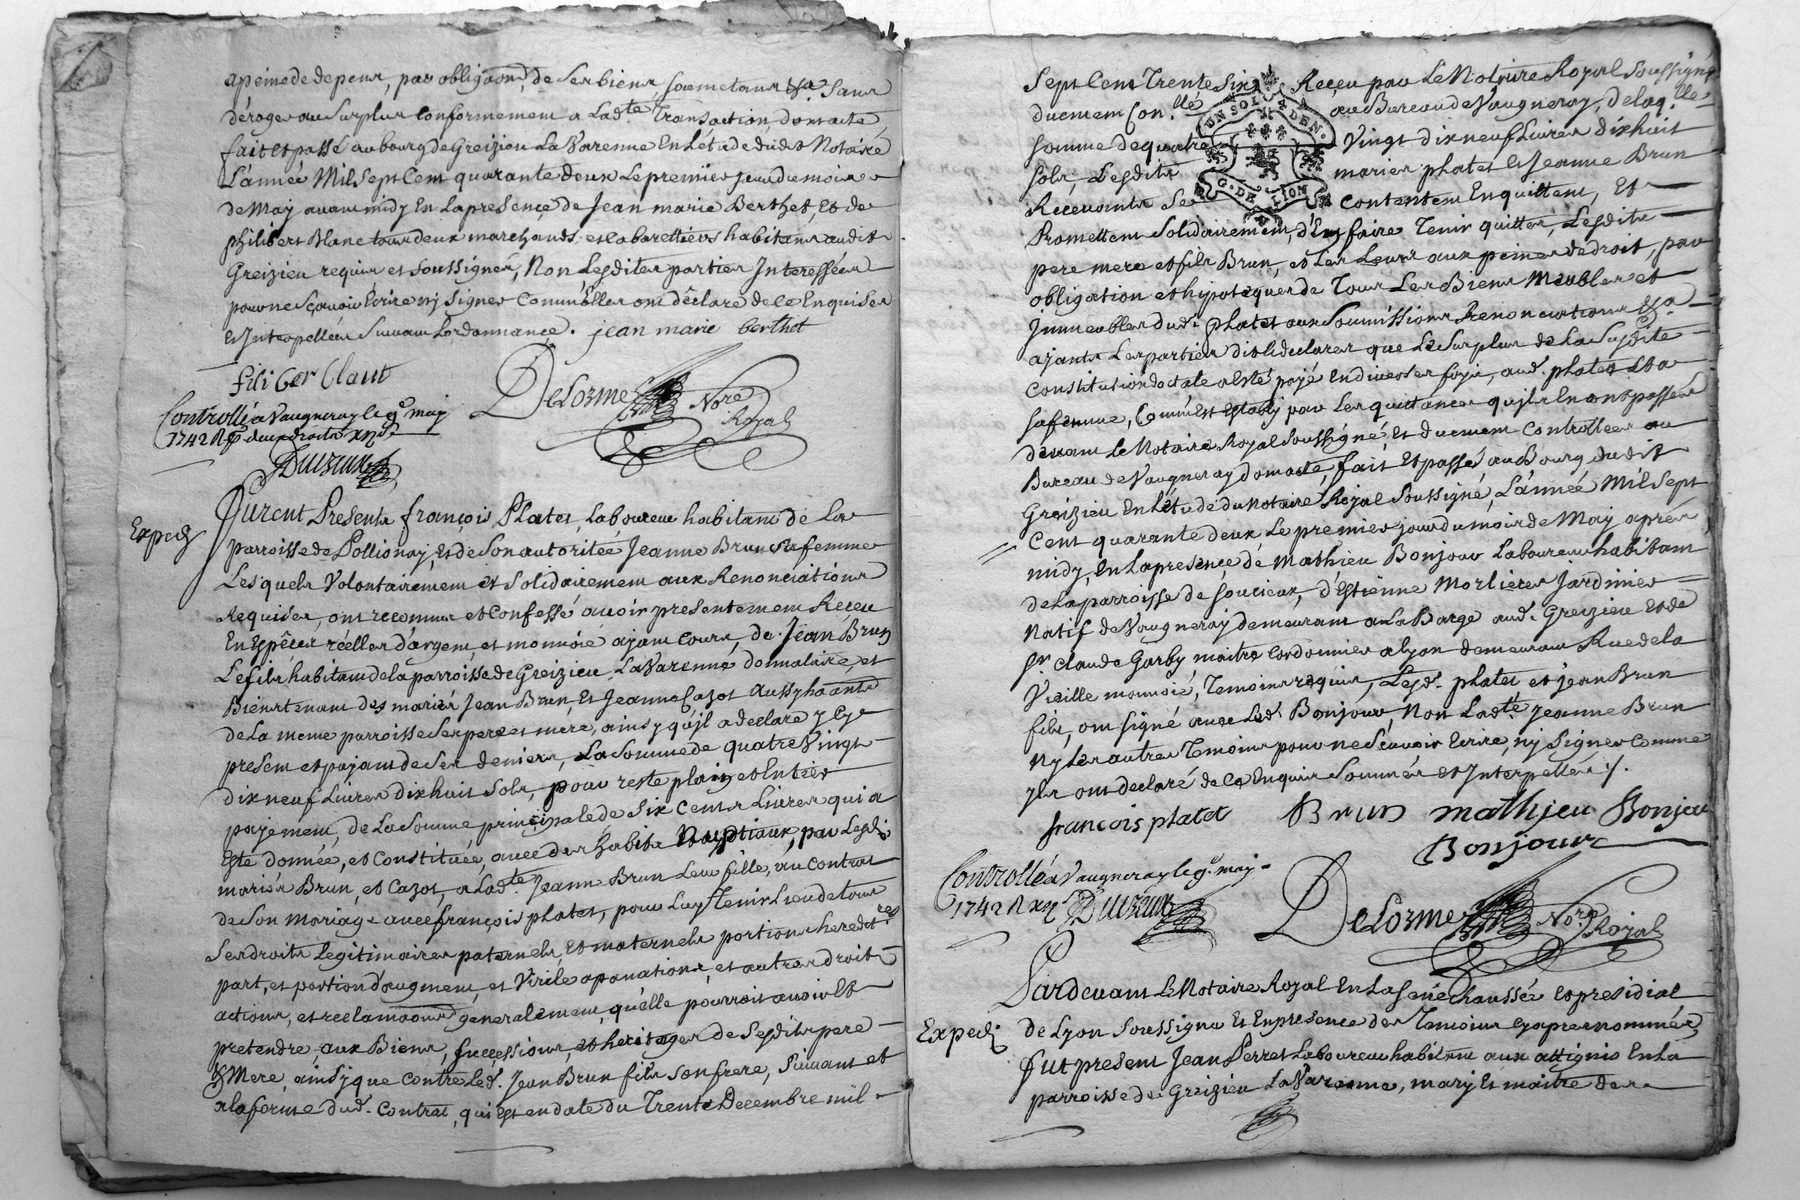 apeine de depens, par obligaõn, de ses biens soumetans &a. sans
déroger au surplus conformement a Ladte. Transaction, dont acte
fait et passé au bourg de Greizieu La Varenne En L'étude dudt Notaire
L'année Mil Sept Cent quarante deux Le premier jour du mois
de May avant midy En La presençe de Jean marie Berthet, Et de
philibert Blanc tous deux marchands et cabarettiers habitans audit
Greizieu requis et soussignés, Non Lesdites parties Interessées
pour ne sçavoir Ecrire ny signer Comm'Elles ont déclaré de ce Enquises
Et Interpellées Suivant L'ordonnançe. jean marie berthet
fili ber Clant
DeLorme Nore Royal
Controllé a Vaugneray le 9e may
1742 R deux droits
Duvzeux
Exped
Furent Presents françois Platet Laboureur habitant de La
parroisse de Pollionay, Et de Son autoritée Jeanne Brun sa femme
Lesquels Volontairement et solidairement aux Renonciations
Requises, ont reconnus et Confessé avoir presentement Receu
En Espêces réelles d'argent, et monnoie ajant cours, de Jean Brun
Le fils habitant de la parroisse de Greizieu La Varenne donnataire, et
Bientenant des mariés Jean Brun, Et Jeanne Cazot aussy habitants
de La meme parroisse Ses pere et mére, ainsy qu'jl a declaré y Cy
present et pajant de Ses deniers, La Somme de quatre Vingt
dix neuf Livres dix huit sols, pour reste plein et Entier
pajement, de La Somme principale de Six Cents Livres qui a
Esté donnée, et Constituée, avec des habits Nuptiaux, par Lesd.
mariés Brun, et Cazot, a Ladte Jeanne Brun Leur fille, au Contrat
de Son mariage avec françois platet, pour Luy Tenir Lieu de tous
Ses droits Legitimaires paternels, Et maternels portions heredit.res
part, et portion d'augment, et Virile apanations, et autres droits
actions, et reclamaõns generalement, qu'elle pourroit avoir Et
pretendre, aux Biens, Successions, et heritages de Sesdits pere
& Mere, ainsÿ que contre Led. Jean Brun fils son frere, Suivant et
a la forme dud. Contrat, qui Est en date du Trente Decembre mil
Sept Cent Trente Six Receu par Le Notaire Royal Soussigné
duement Con.llé au Bureau de Vaugneray, de laq.lle
somme de quatre Vingt dix neuf Livres dix huit
sols, Lesdits mariés platet et Jeanne Brun
Recevants Se Contentent Enquittent, Et
UN SOL 4 DEN.
G. DE LION
Promettent Solidairement, d'En faire Tenir quittes, Lesdits
pere mere et fils Brun, et Les Leurs aux peines de droit, par
obligation et hipoteques de Tous Les Biens Meubles et
jmmeubles dud. platet aux Soumissions Renonciations &a.
ajants Les parties dict declarer que Le Surplus de La Susdite
Constitution dotale a Esté payé En diverses fois, aud. platet Et a
sa femme, Comm'est Etably par Les quittances qu'jls En ont passées
devant Le Notaire Royal Soussigné, Et duement Controllées au
Bureau de Vaugneray dont acte, fait Et passé au Bourg dudit
Greizieu En L'étude du Notaire Royal Soussigné, L'année Mil Sept
Cent quarante deux Le premier jour du mois de May aprés
midy, En La presence de Mathieu Bonjour Laboureur habitant
de La parroisse de Soucieux, d'Estienne Morlieres Jardinier
Natif de Vaugneray demeurant a La Barge aud. Greizieu Et de
Sr Claude Garby maitre Cordonnier a Lyon demeurant Rue de la
Vieille monnoie, Temoins requis, Lesd. platet et jean Brun
fils, ont signé avec Led. Bonjour, Non Ladte Jeanne Brun
ny Les autres Temoins pour ne Sçavoir Ecrire, ny Signer Comme
jls ont declaré de Ce Enquis Sommés et Interpellés ./.
francois platet Brun mathieu Bonjeu
Bonjour
Controllé a Vaugneray le 9e may
1742 R Duvzeux
DeLorme Nore. Royal
Pardevant Le Notaire Royal En La Senéchaussée Et presidial
Exped.
de Lyon Soussigné Et En presence des Temoins cy apres nommés
fut present Jean Perret Laboureur habitant aux attignis En La
parroisse de Greizieu La Varenne, mary Et maitre des